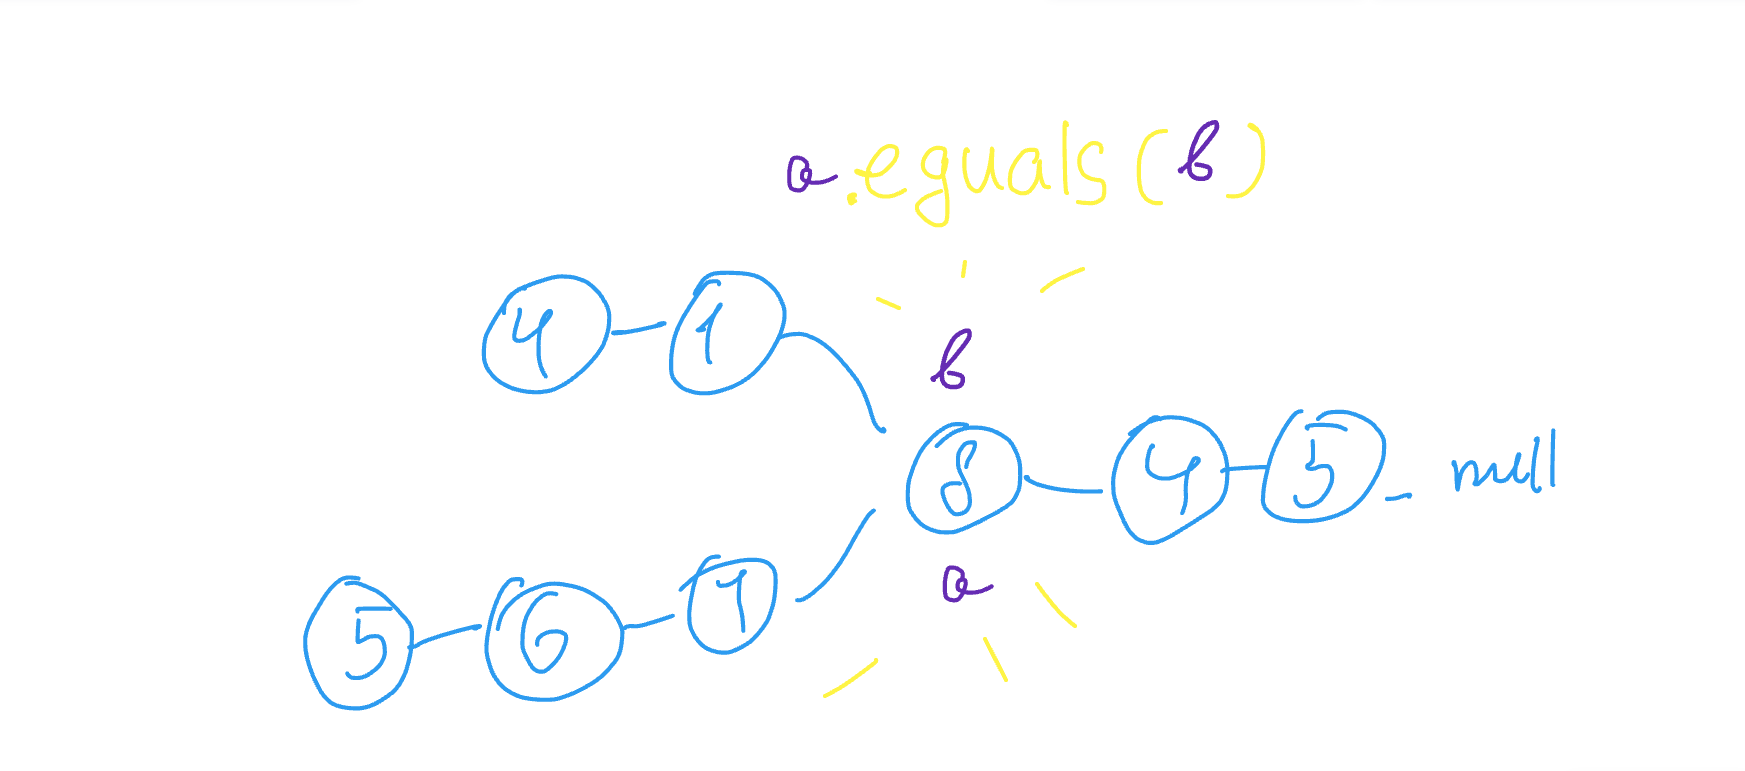 a.equals(b)
4 1
b
8 4 5 null
a
5 6 1